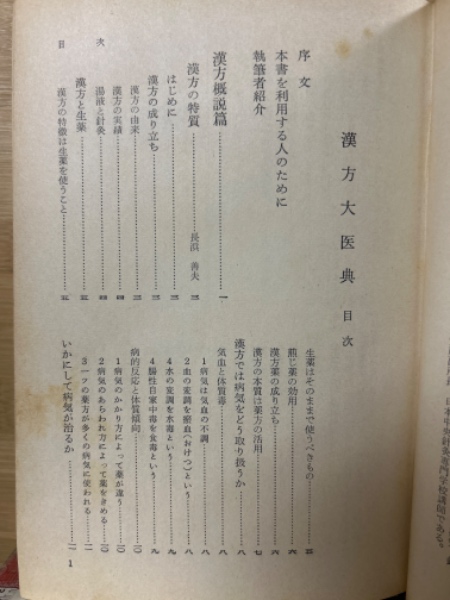 漢方大医典 目次
序文
本書を利用する人のために
執筆者紹介
漢方概説篇……一
漢方の特質……長浜 善夫……三
はじめに……三
漢方の成り立ち……三
漢方の由来……三
漢方の実績……四
湯液と針灸……四
漢方と生薬……五
漢方の特徴は生薬を使うこと……五
目次
生薬はそのままで使うべきもの……五
煎じ薬の効用……六
漢方薬の成り立ち……六
漢方の本質は薬方の活用……七
漢方では病気をどう取り扱うか……八
気血と体質毒……八
1 病気は気血の不調……八
2 血の変調を瘀血(おけつ)という……八
4 水の変調を水毒という……九
4 腸性自家中毒を食毒という……九
病的反応と体質傾向……一〇
1 病気のかかり方によって薬が違う……一〇
2 病気のあらわれ方によって薬をきめる……一〇
3 一つの薬方が多くの病気に使われる……一一
いかにして病気が治るか……一一
1
日本中央針灸専門学校講師である。